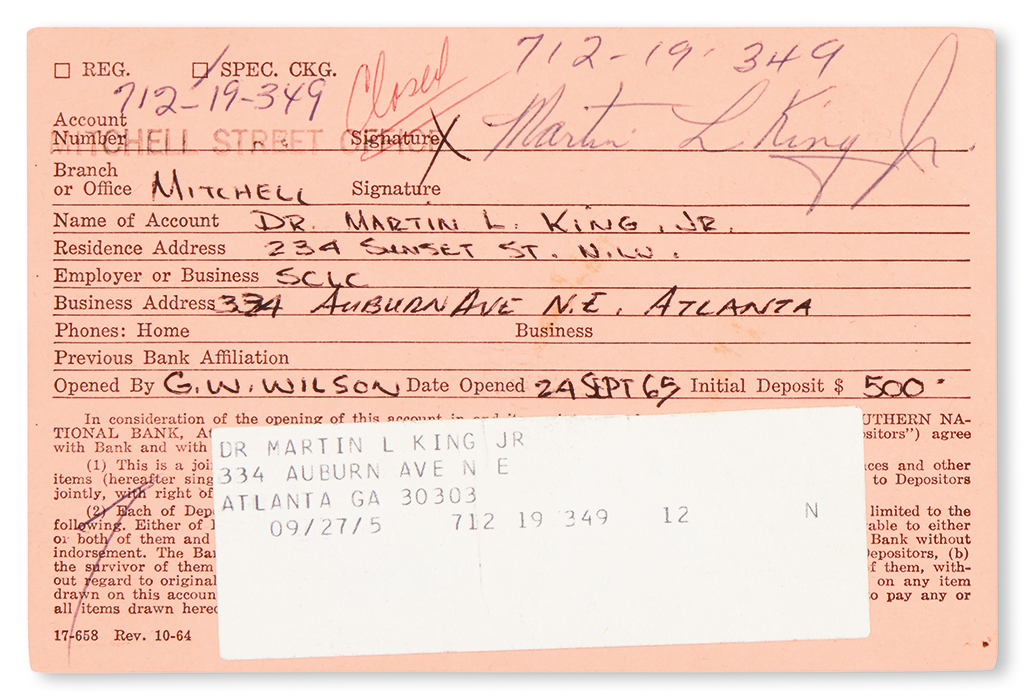 712-19-349
☐ REG. ☐ SPEC. CKG. Closed
712-19-349
Account
Number Signature X Martin L King Jr.
MITCHELL STREET OFFICE
Branch
or Office MITCHELL Signature
Name of Account DR. MARTIN L. KING, JR.
Residence Address 234 SUNSET ST. N.W.
Employer or Business SCLC
Business Address 334 AUBURN AVE N.E. ATLANTA
Phones: Home Business
Previous Bank Affiliation
Opened By G.W. WILSON Date Opened 24 SEPT 65 Initial Deposit $ 500.
In consideration of the opening of this account in and
TIONAL BANK, SOUTHERN NA-
with Bank and with agree
(1) This is a and other
items (hereafter to Depositors
jointly, with right of
(2) Each of limited to the
following. Either of to either
or both of them and Bank without
indorsement. The Depositors, (b)
the survivor of them of them, with-
out regard to original on any item
drawn on this to pay any or
all items drawn
DR MARTIN L KING JR
334 AUBURN AVE N E
ATLANTA GA 30303
09/27/5 712 19 349 12 N
17-658 Rev. 10-64